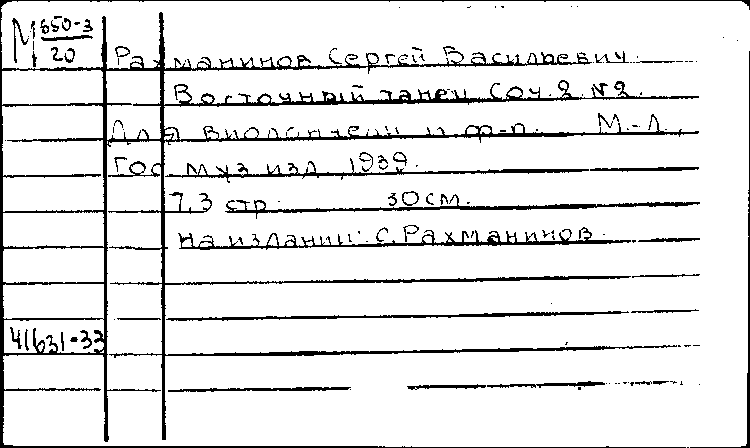 М 650-3
20
Рахманинов Сергей Васильевич.
Восточный танец Соч. 2 №2.
Для виолончели и ф-п. М.-Л.,
Гос. муз. изд., 1939.
7,3 стр. 30 см.
На издании: С. Рахманинов.
41631-33